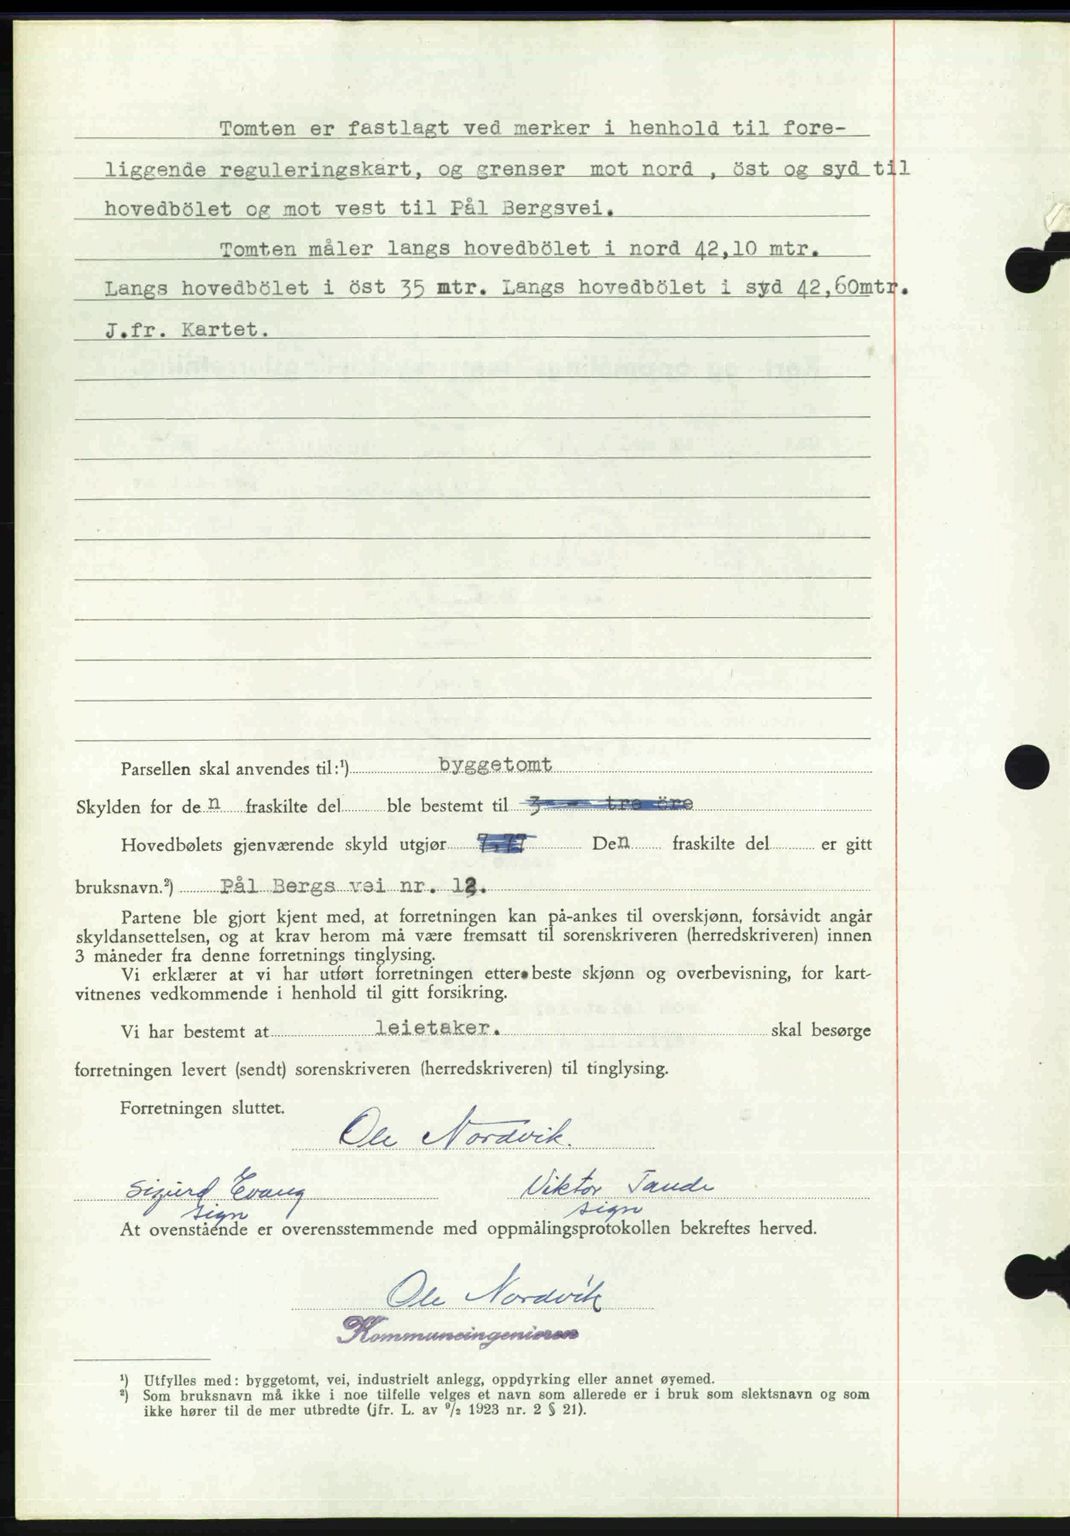 Tomten er fastlagt ved merker i henhold til fore-
liggende reguleringskart, og grenser mot nord , öst og syd til
hovedbölet og mot vest til Pål Bergsvei.
Tomten måler langs hovedbölet i nord 42,10 mtr.
Langs hovedbölet i öst 35 mtr. Langs hovedbölet i syd 42,60mtr.
J.fr. Kartet.
Parsellen skal anvendes til:¹) byggetomt
Skylden for den fraskilte del ble bestemt til 3 - - tre öre
Hovedbølets gjenværende skyld utgjør 7,77 Den fraskilte del er gitt
bruksnavn.²) Pål Bergs vei nr. 12.
Partene ble gjort kjent med, at forretningen kan på-ankes til overskjønn, forsåvidt angår
skyldansettelsen, og at krav herom må være fremsatt til sorenskriveren (herredskriveren) innen
3 måneder fra denne forretnings tinglysing.
Vi erklærer at vi har utført forretningen etter beste skjønn og overbevisning, for kart-
vitnenes vedkommende i henhold til gitt forsikring.
Vi har bestemt at leietaker. skal besørge
forretningen levert (sendt) sorenskriveren (herredskriveren) til tinglysing.
Forretningen sluttet.
Ole Nordvik.
Sigurd Evang Viktor Tande
sign sign
At ovenstående er overensstemmende med oppmålingsprotokollen bekreftes herved.
Ole Nordvik
Kommuneingeniøren
¹) Utfylles med: byggetomt, vei, industrielt anlegg, oppdyrking eller annet øyemed.
²) Som bruksnavn må ikke i noe tilfelle velges et navn som allerede er i bruk som slektsnavn og som
ikke hører til de mer utbredte (jfr. L. av ⁹/₂ 1923 nr. 2 § 21).